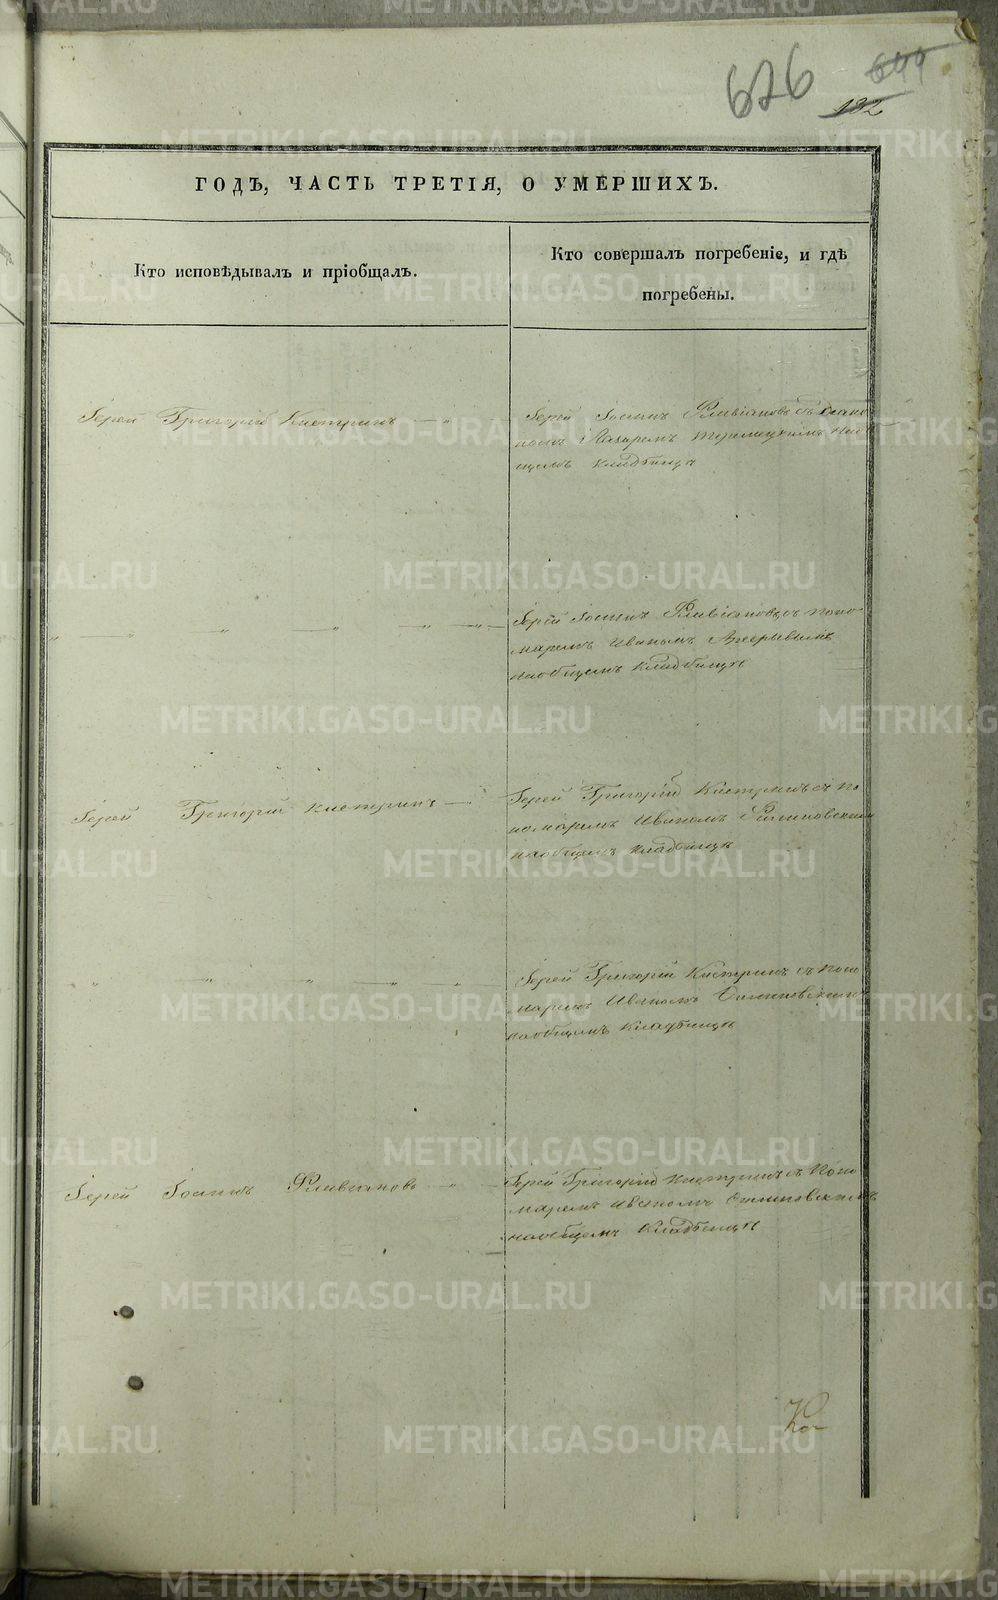 626
699
182
ГОДЪ, ЧАСТЬ ТРЕТІЯ, О УМЕРШИХЪ.
Кто исповѣдывалъ и пріобщалъ.
Кто совершалъ погребеніе, и гдѣ
погребены.
Іерей Григорій Кастринъ
Іерей Іоаннъ Флавіановъ съ
номъ Лазаремъ
щемъ кладбищѣ
Іерей Іоаннъ Флавіановъ съ поно-
маремъ Иваномъ
на общемъ кладбищѣ
Іерей Григорій Кастринъ
Іерей Григорій Кастринъ съ по
номаремъ Иваномъ
на общемъ кладбищѣ
Іерей Григорій Кастринъ съ поно
маремъ Иваномъ
на общемъ кладбищѣ
Іерей Іоаннъ Флавіановъ
Іерей Григорій Кастринъ съ поно
маремъ Иваномъ
на общемъ кладбищѣ
METRIKI.GASO-URAL.RU